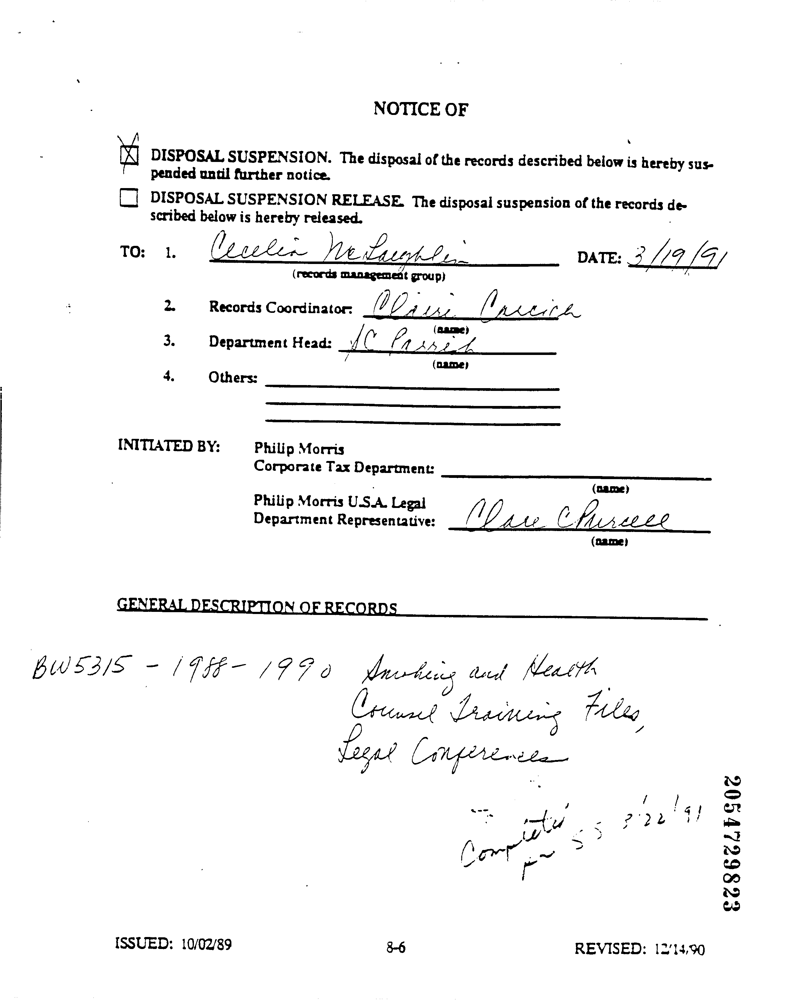 NOTICE OF
DISPOSAL SUSPENSION. The disposal of the records described below is hereby sus-
pended until further notice.
DISPOSAL SUSPENSION RELEASE. The disposal suspension of the records de-
scribed below is hereby released.
TO: 1. Cecelia McLaughlin DATE: 3/19/91
(records management group)
2. Records Coordinator: 
(name)
3. Department Head: Parrish
(name)
4. Others:
INITIATED BY: Philip Morris
Corporate Tax Department:
(name)
Philip Morris U.S.A. Legal
Department Representative: Clare C Purcell
(name)
GENERAL DESCRIPTION OF RECORDS
BW5315 - 1988 - 1990 Smoking and Health
Counsel Training Files,
Legal Conferences
Completed 3/22/91
per SS
2054729823
ISSUED: 10/02/89 8-6 REVISED: 12/14/90